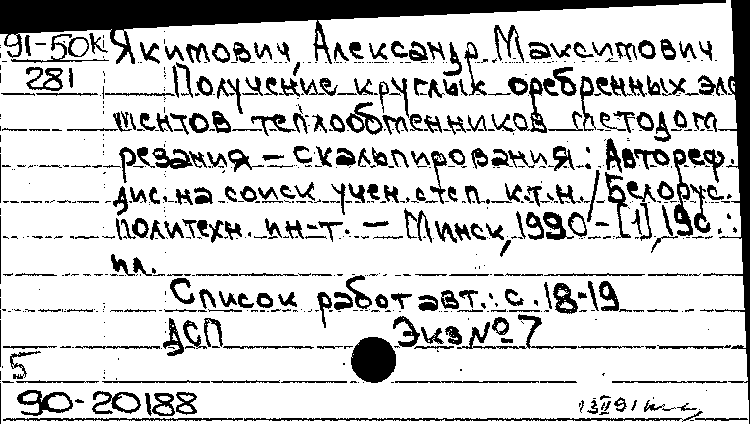 91-50к Якимович, Александр Максимович
281 Получение круглых оребренных эле
ментов теплообменников методом
резания – скальпирования: Автореф.
дис. на соиск учен. степ. к.т.н. / Белорус.
политехн. ин-т. – Минск, 1990 – [1], 19с.:
ил.
Список работ авт.: с. 18-19
ДСП Экз № 7
5
90-20188